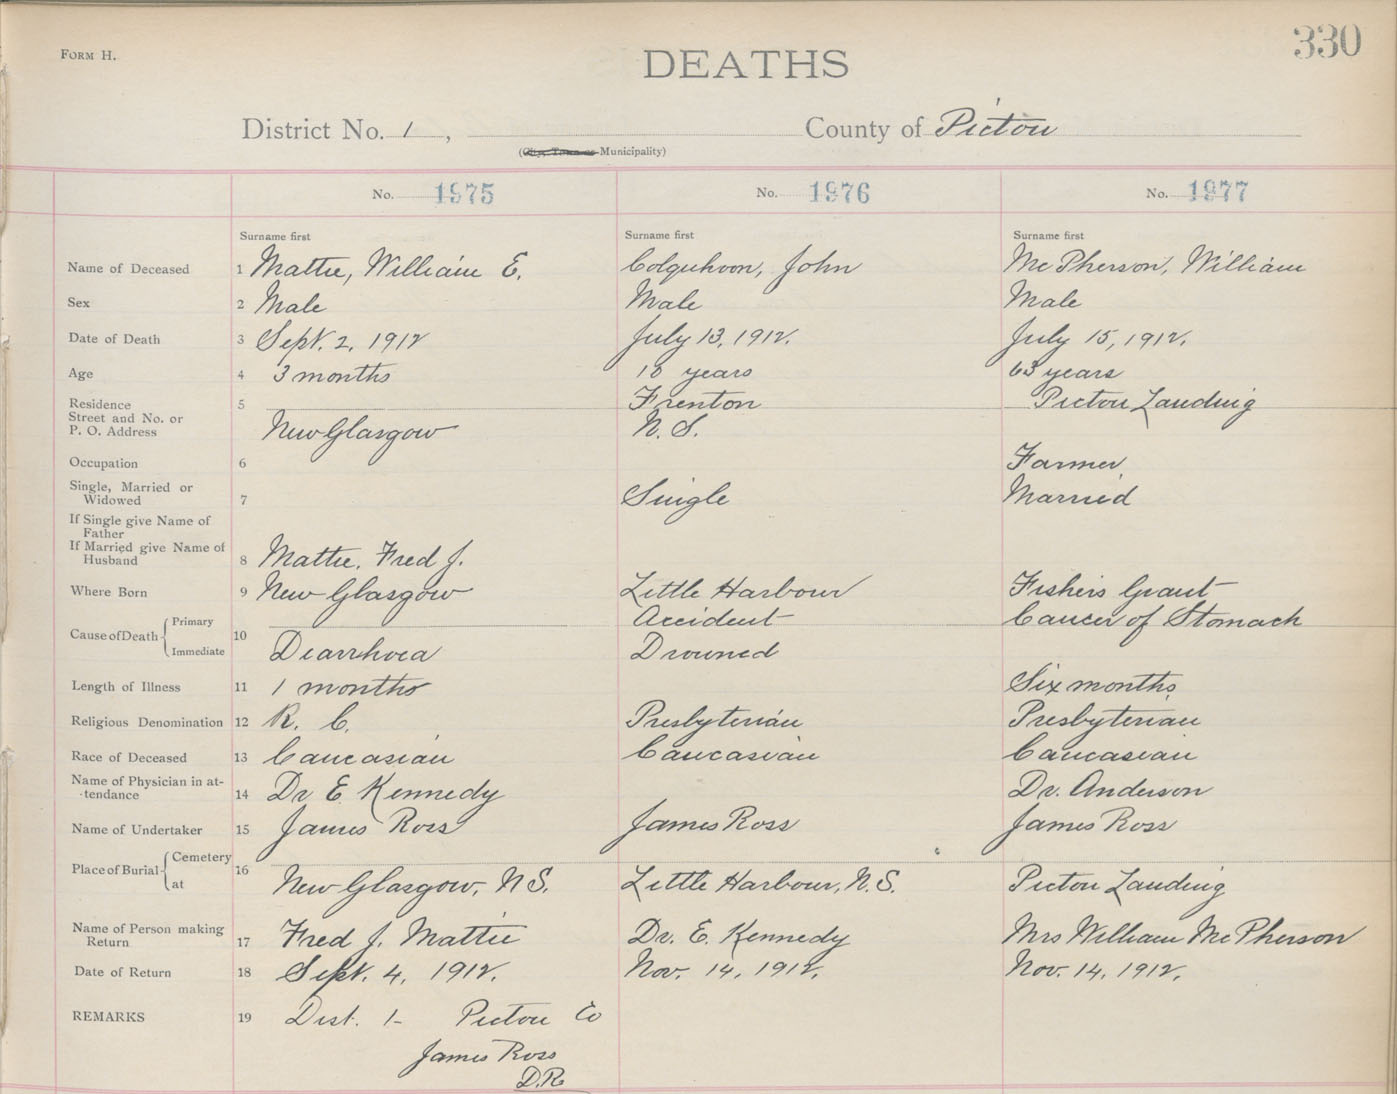 FORM H.
DEATHS
330
District No. 1, County of Pictou
(City, Town or Municipality)
No. 1975 No. 1976 No. 1977
Surname first Surname first Surname first
Name of Deceased 1 Mattie, William E. Colquhoon, John McPherson, William
Sex 2 Male Male Male
Date of Death 3 Sept. 2, 1912 July 13, 1912. July 15, 1912.
Age 4 3 months years 63 years
Residence 5 Trenton Pictou Landing
Street and No. or
P. O. Address New Glasgow N. S.
Occupation 6 Farmer
Single, Married or
Widowed 7 Single Married
If Single give Name of
Father
If Married give Name of
Husband 8 Mattie, Fred J.
Where Born 9 New Glasgow Little Harbour Fishers Grant
Cause of Death Primary 10 Accident Cancer of Stomach
Immediate Diarrhoea Drowned
Length of Illness 11 1 months Six months
Religious Denomination 12 R. C. Presbyterian Presbyterian
Race of Deceased 13 Caucasian Caucasian Caucasian
Name of Physician in at-
tendance 14 Dr E. Kennedy Dr. Anderson
Name of Undertaker 15 James Ross James Ross James Ross
Place of Burial Cemetery 16
at New Glasgow, N S. Little Harbour, N. S. Pictou Landing
Name of Person making
Return 17 Fred J. Mattie Dr. E. Kennedy Mrs William McPherson
Date of Return 18 Sept. 4, 1912. Nov. 14, 1912. Nov. 14, 1912.
REMARKS 19 Dist. 1- Pictou Co
James Ross
D.R.